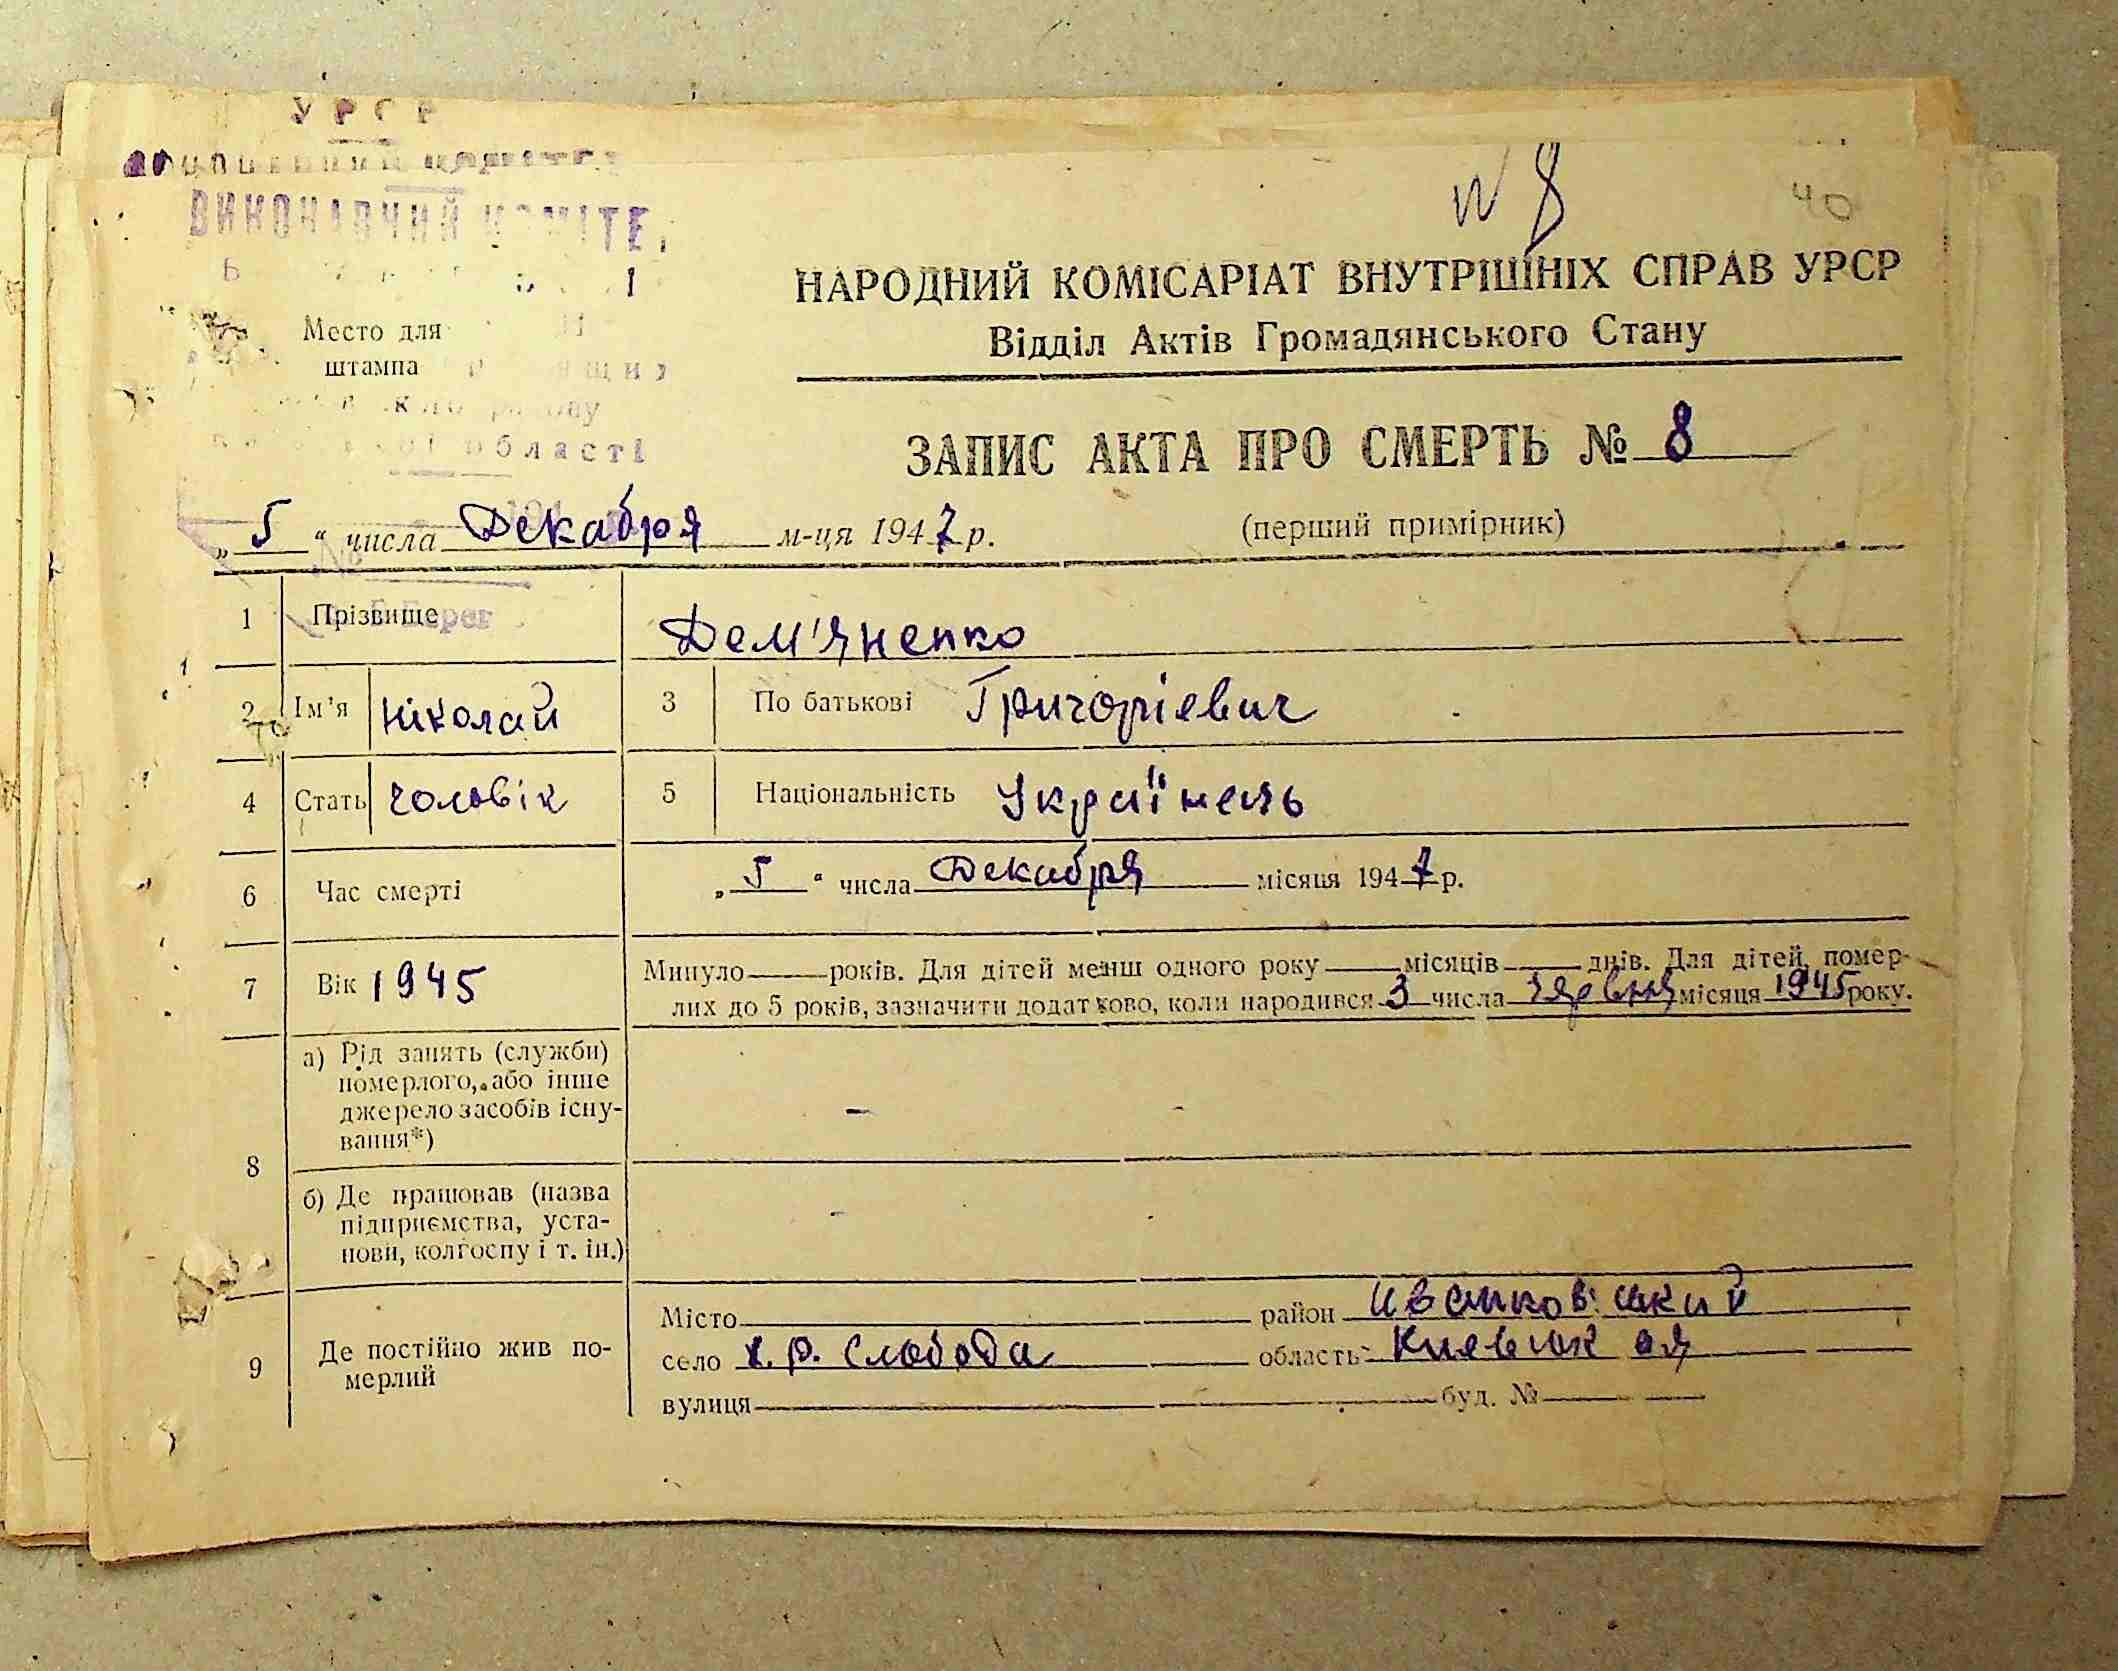 УРСР
ВИКОНАВЧИЙ КОМІТЕ
№ 8
40
НАРОДНИЙ КОМІСАРІАТ ВНУТРІШНІХ СПРАВ УРСР
Відділ Актів Громадянського Стану
Место для
штампа
області
ЗАПИС АКТА ПРО СМЕРТЬ № 8
„ 5 “ числа Декабря м-ця 1947 р.
(перший примірник)
1 Прізвище Дем'яненко
2 Ім'я Ніколай 3 По батькові Григоріевич
4 Стать чоловік 5 Національність Українець
6 Час смерті „ 5 “ числа Декабря місяця 1947 р.
7 Вік 1945 Минуло років. Для дітей менш одного року місяців днів. Для дітей, помер-
лих до 5 років, зазначити додатково, коли народився 3 числа червня місяця 1945 року.
8
а) Рід занять (служби)
померлого, або інше
джерело засобів існу-
вання*)
-
-
б) Де працював (назва
підприємства, уста-
нови, колгоспу і т. ін.)
-
-
9 Де постійно жив по-
мерлий
Місто район Иванковіцкий
село Х.Р. Слобода область Киевская
вулиця буд. №